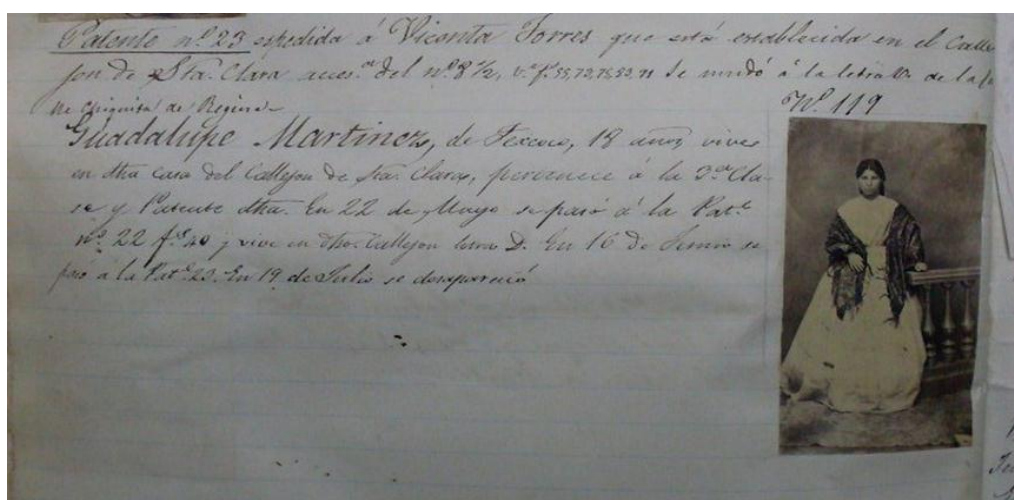 Patente nº 23 expedida á Vicenta Torres que está establecida en el Calle
jon de Sta. Clara acces.ª del nº 8 1/2, v.ª fs. 55, 72, 78, 82, 91 Se mudó á la letra de la Ca
lle Chiquita de Regina
Nº. 119
Guadalupe Martinez, de Texcoco, 18 años, vive
en dha casa del Callejon de Sta. Clara, pertenece á la 3ª Cla-
se y Patente dha. En 22 de Mayo se pasó á la Pat.e
nº. 22 fs. 40 y vive en dho. Callejon letra D. En 16 de Junio se
pasó á la Pat.e 23. En 19 de Julio se desapareció